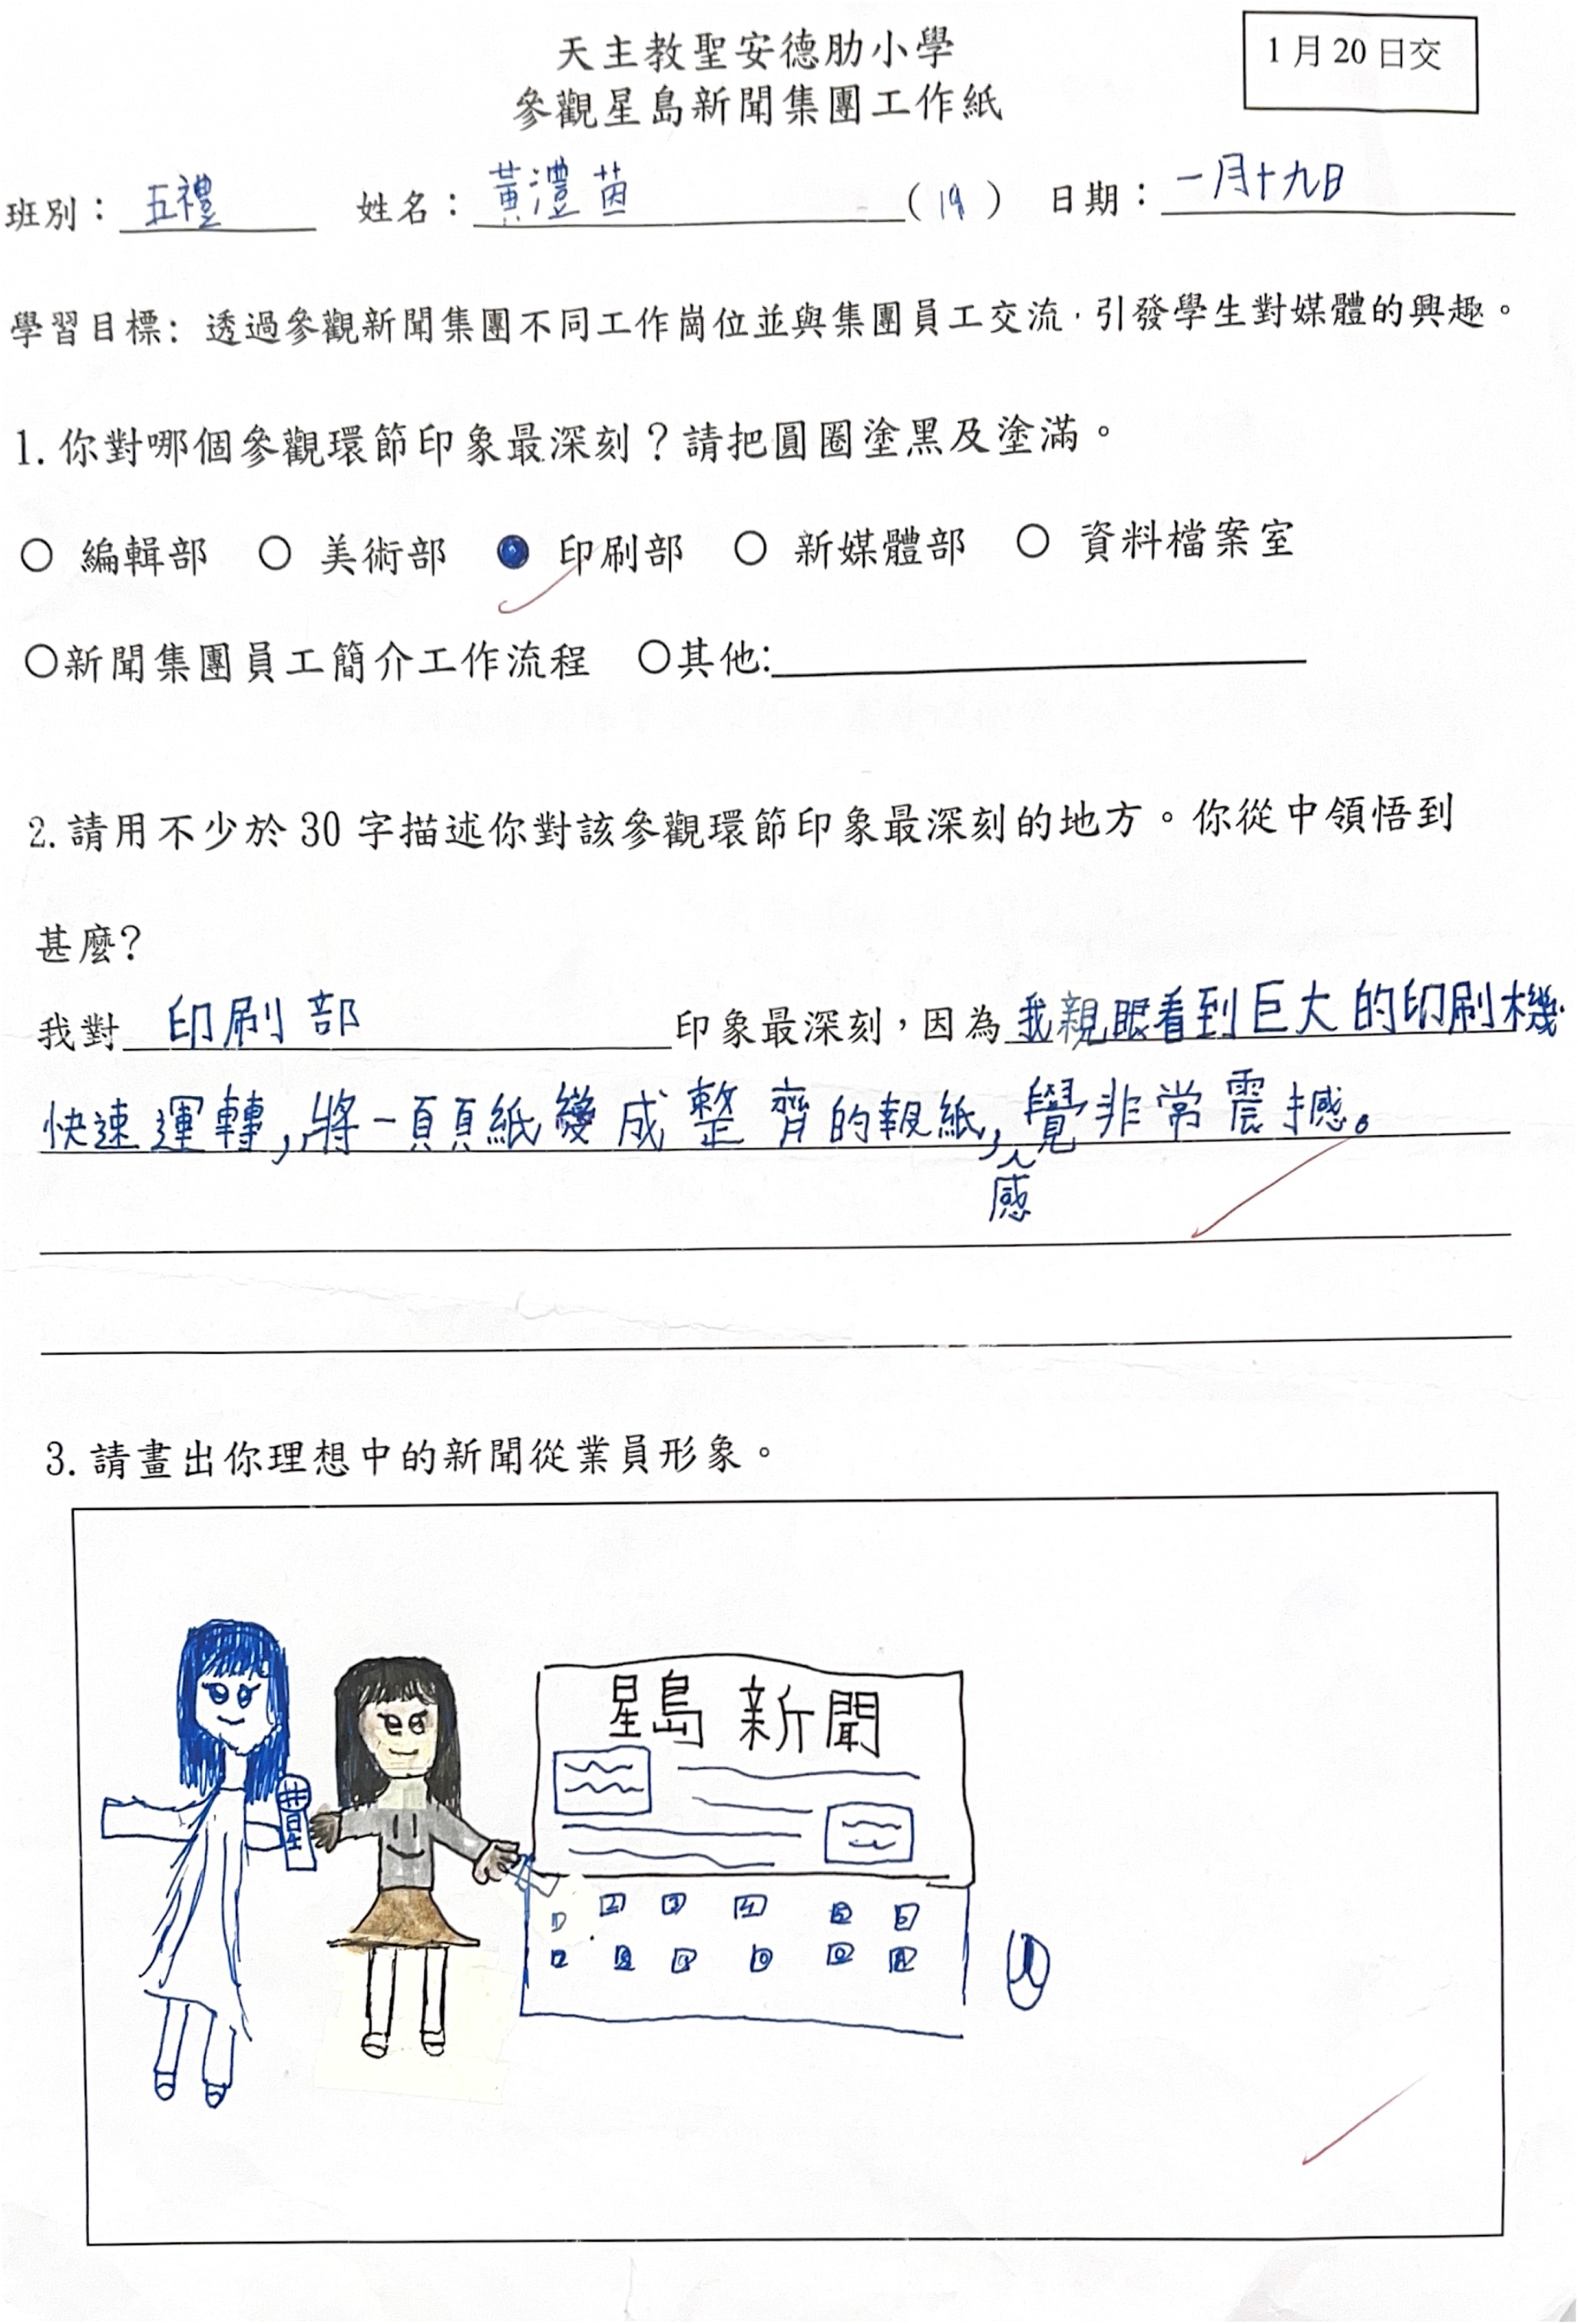 天主教聖安德肋小學
1月20日交
參觀星島新聞集團工作紙
班別：五禮 姓名：黃澧茵(19) 日期：一月十九日
學習目標：透過參觀新聞集團不同工作崗位並與集團員工交流，引發學生對媒體的興趣。
1.你對哪個參觀環節印象最深刻？請把圓圈塗黑及塗滿。
○ 編輯部 ○ 美術部 ● 印刷部 ○ 新媒體部 ○ 資料檔案室
○新聞集團員工簡介工作流程 ○其他:
2.請用不少於30字描述你對該參觀環節印象最深刻的地方。你從中領悟到
甚麼?
我對 印刷部 印象最深刻，因為我親眼看到巨大的印刷機
快速運轉,將一頁頁紙變成整齊的報紙,感覺非常震撼。
3.請畫出你理想中的新聞從業員形象。
星島新聞
星